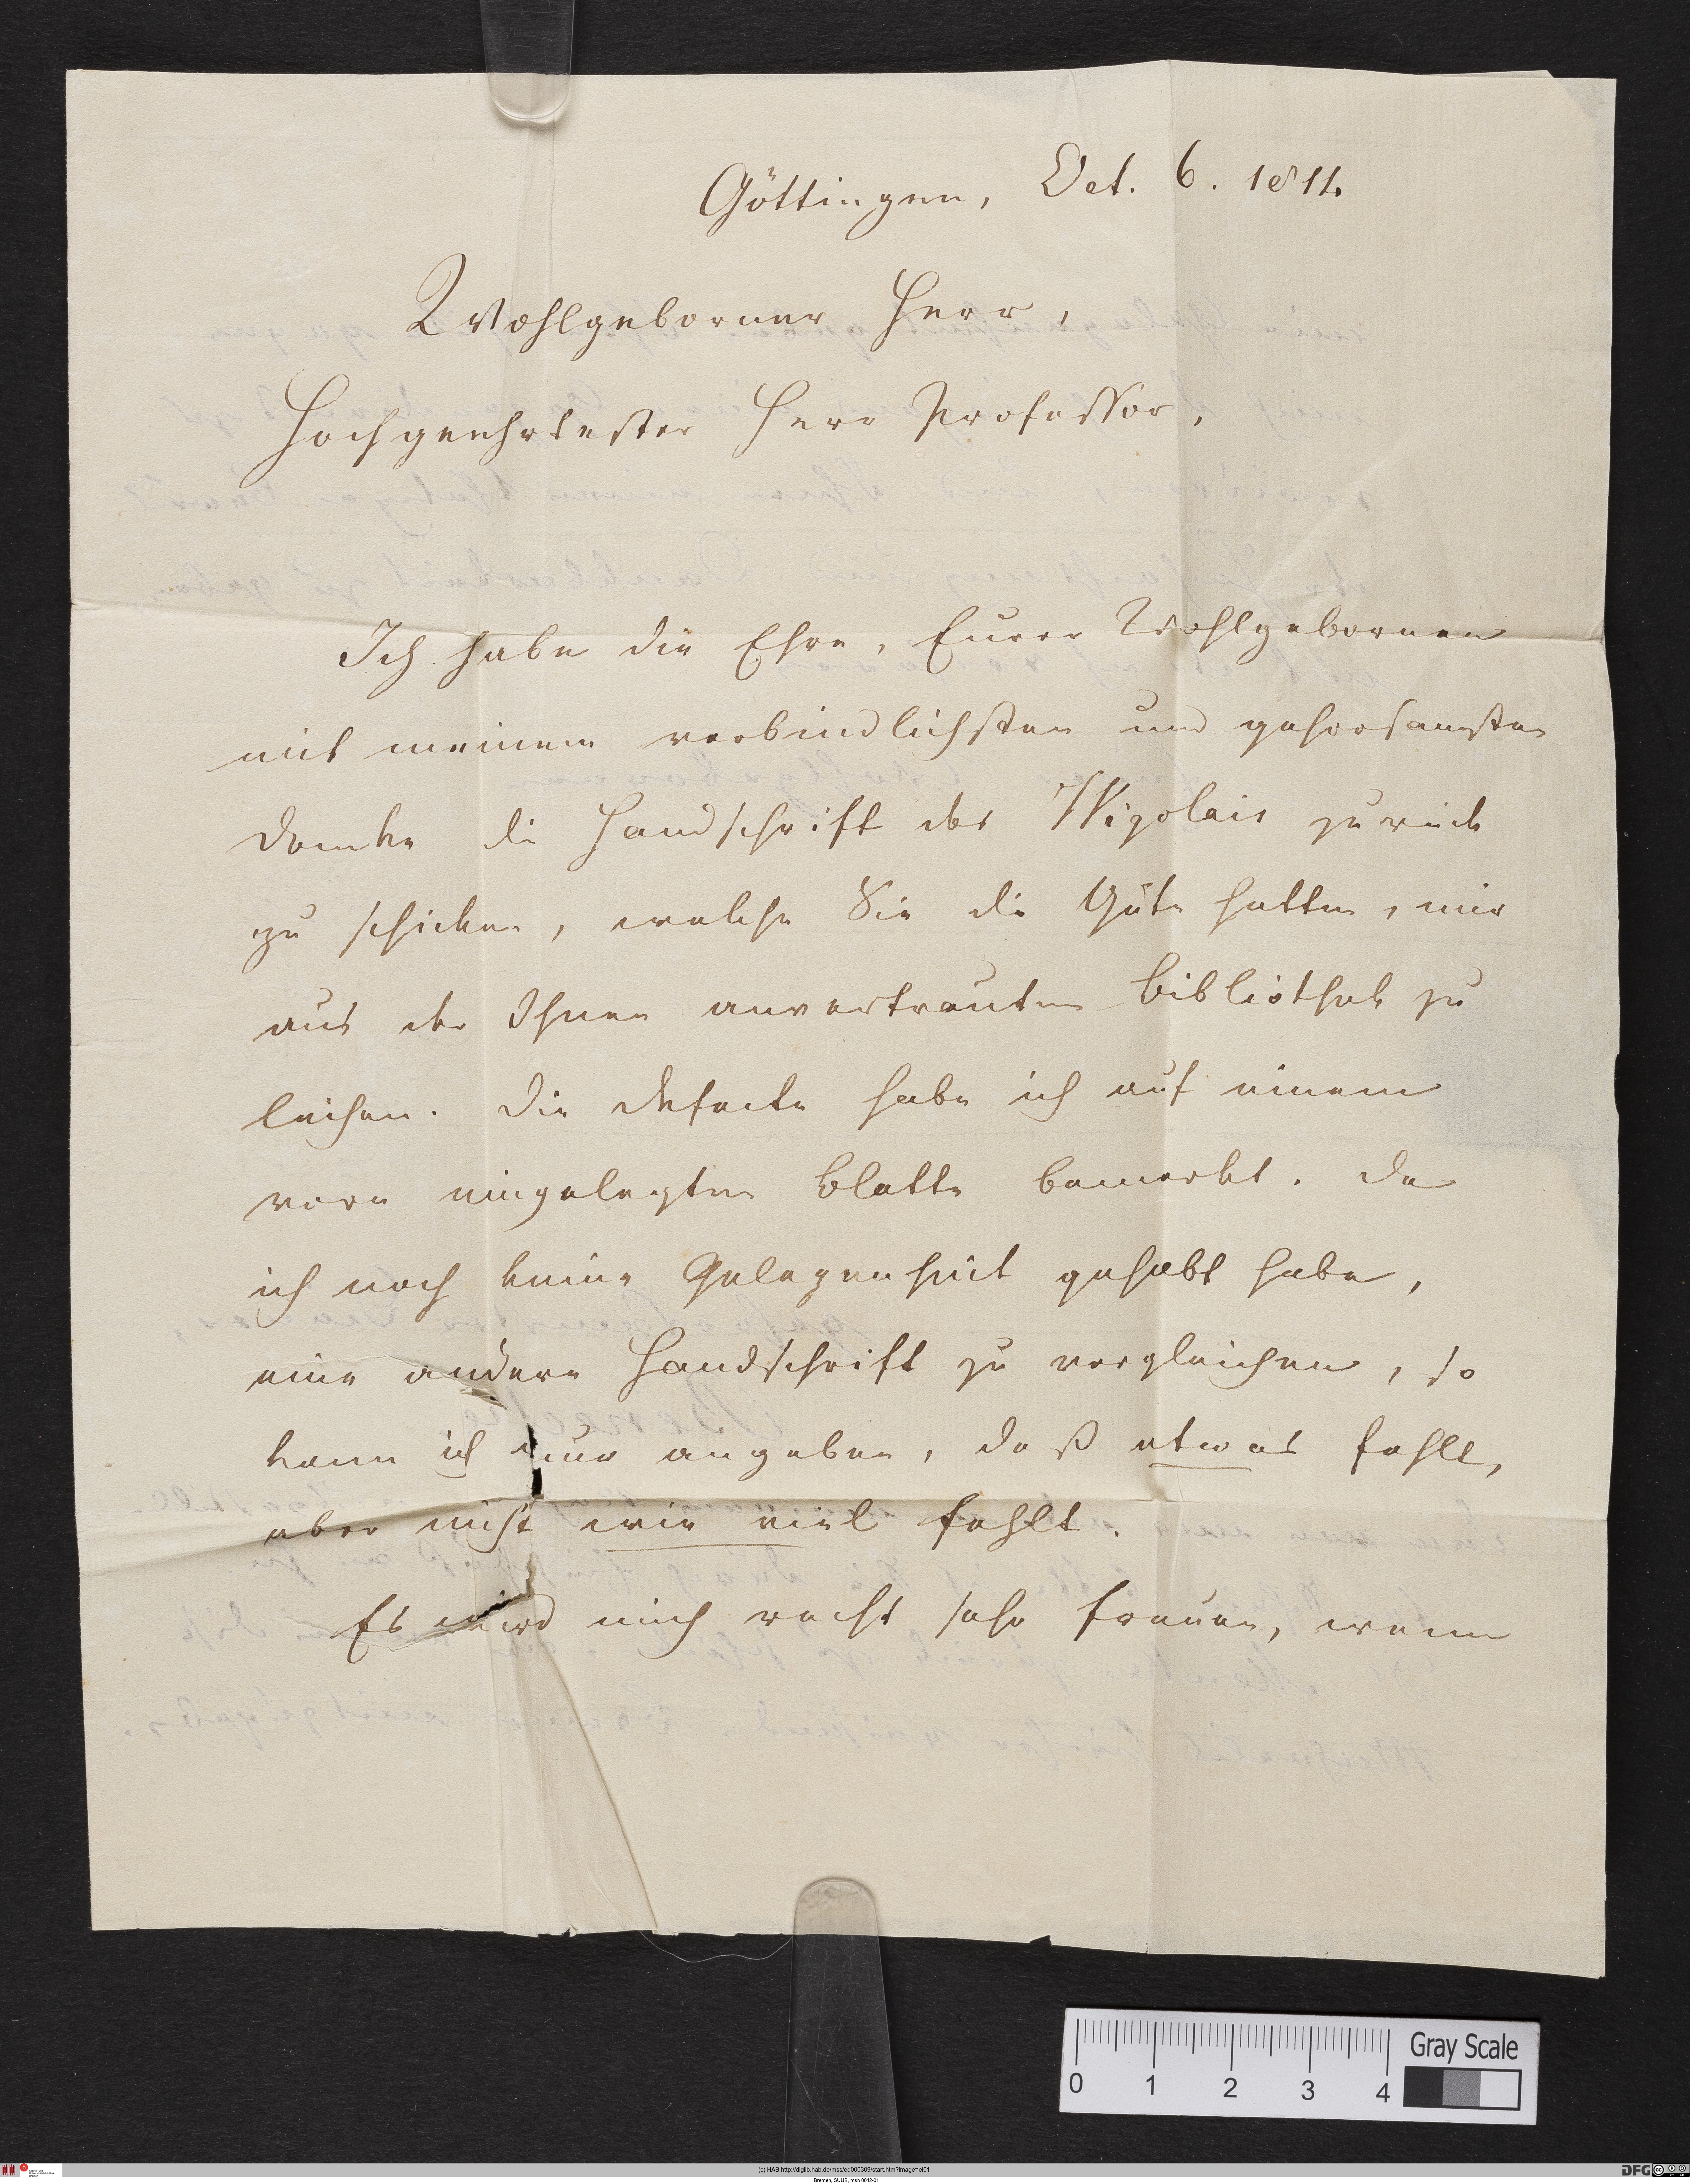 Göttingen, Oct. 6. 1811.
Wohlgeborner Herr,
Hochgeehrtester Herr Professor,
Ich habe die Ehre, Eurer Wohlgebornen
mit meinem verbindlichsten und gehorsamsten
Danke die Handschrift des Wigolais zurück
zu schicken, welche Sie die Güte hatten, mir
aus der Ihnen anvertrauten Bibliothek zu
leihen. Die Defecte habe ich auf einem
vorn eingelegten Blatte bemerkt. Da
ich noch keine Gelegenheit gehabt habe,
eine andere Handschrift zu vergleichen, so
kann ich nur angeben, daß etwas fehlt,
aber nicht wie viel fehlt.
Es wird mich recht sehr freuen, wenn
0 1 2 3 4 Gray Scale
(c) HAB http://diglib.hab.de/mss/ed000309/start.htm?image=el01
Bremen, SUUB, msb 0042-01
DFG